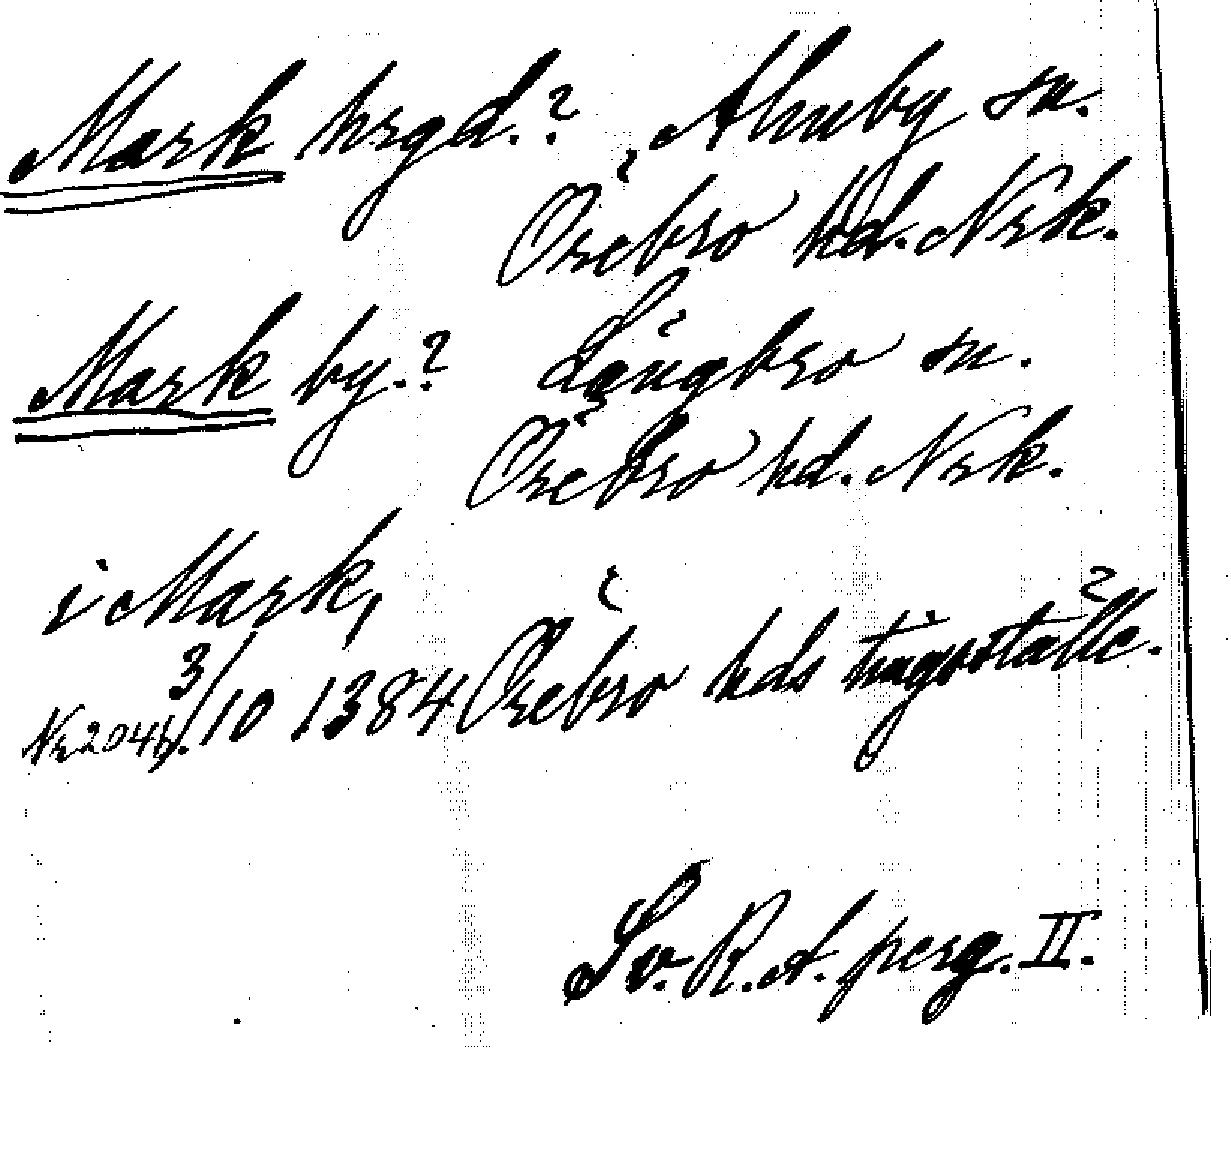 Mark hrgd.?, Almby sn.
Örebro hd. Nrk.
Mark by.? Längbro sn.
Örebro hd. Nrk.
i Mark,
3/10 1384 Örebro hds tingställe.
Nr 2046.
Sv. R. A. perg. II.